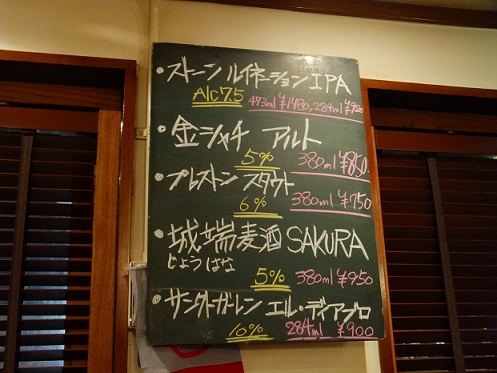 ・ストーン ルイネーション IPA
Alc7.5 473ml ¥1480, 284ml ¥920
・金シャチ アルト
5% 380ml ¥850
・プレストン スタウト
6% 380ml ¥750
・城端麦酒 SAKURA
じょうはな 5% 380ml ¥950
・サンクトガーレン エル・ディアブロ
10% 284ml ¥900